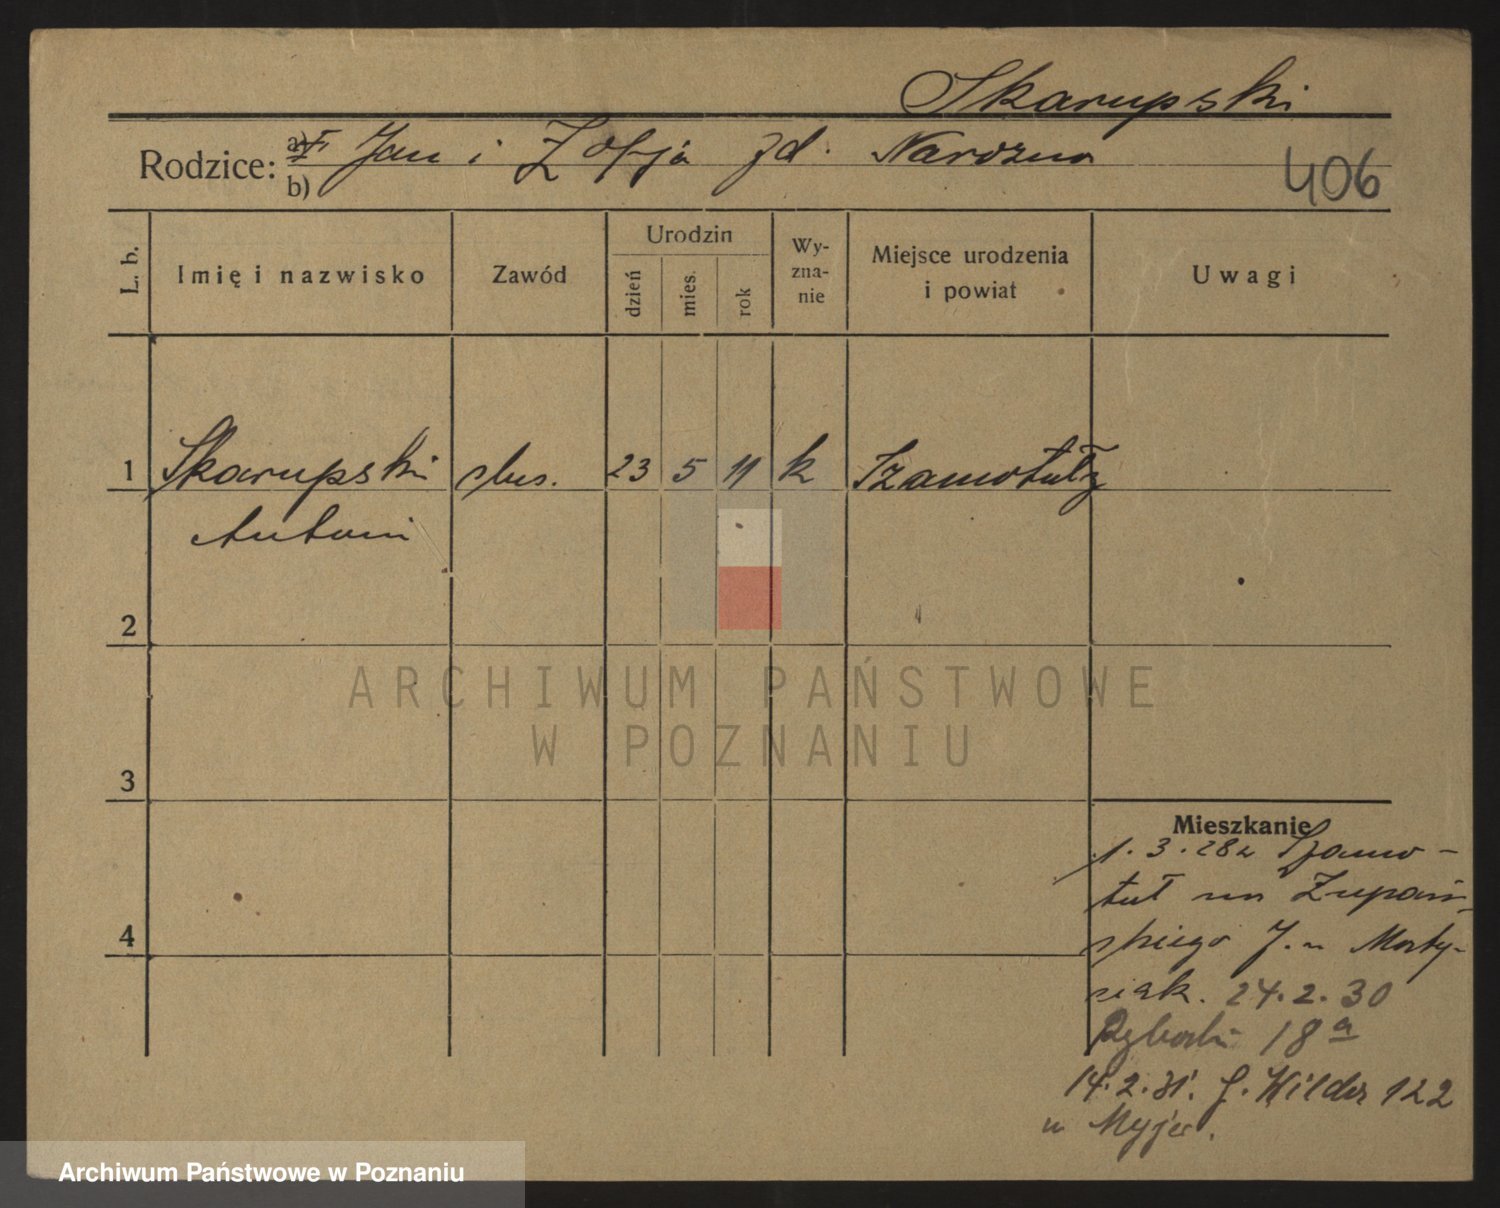 Skarupski
Rodzice: a) Jan i Zofja zd. Narożna
b)
406
L. b.
Imię i nazwisko
Zawód
Urodzin
dzień
mies.
rok
Wy-
zna-
nie
Miejsce urodzenia
i powiat
Uwagi
1 Skarupski ślus. 23 5 11 k Szamotuły
Antoni
2
ARCHIWUM PAŃSTWOWE
W POZNANIU
3
Mieszkanie
1.3.28 z Szamo-
tuł na Żupań-
skiego u Marty-
niak. 24.2.30
Rybaki 18a
4
14.2.31. G. Wilda 122
u
Archiwum Państwowe w Poznaniu